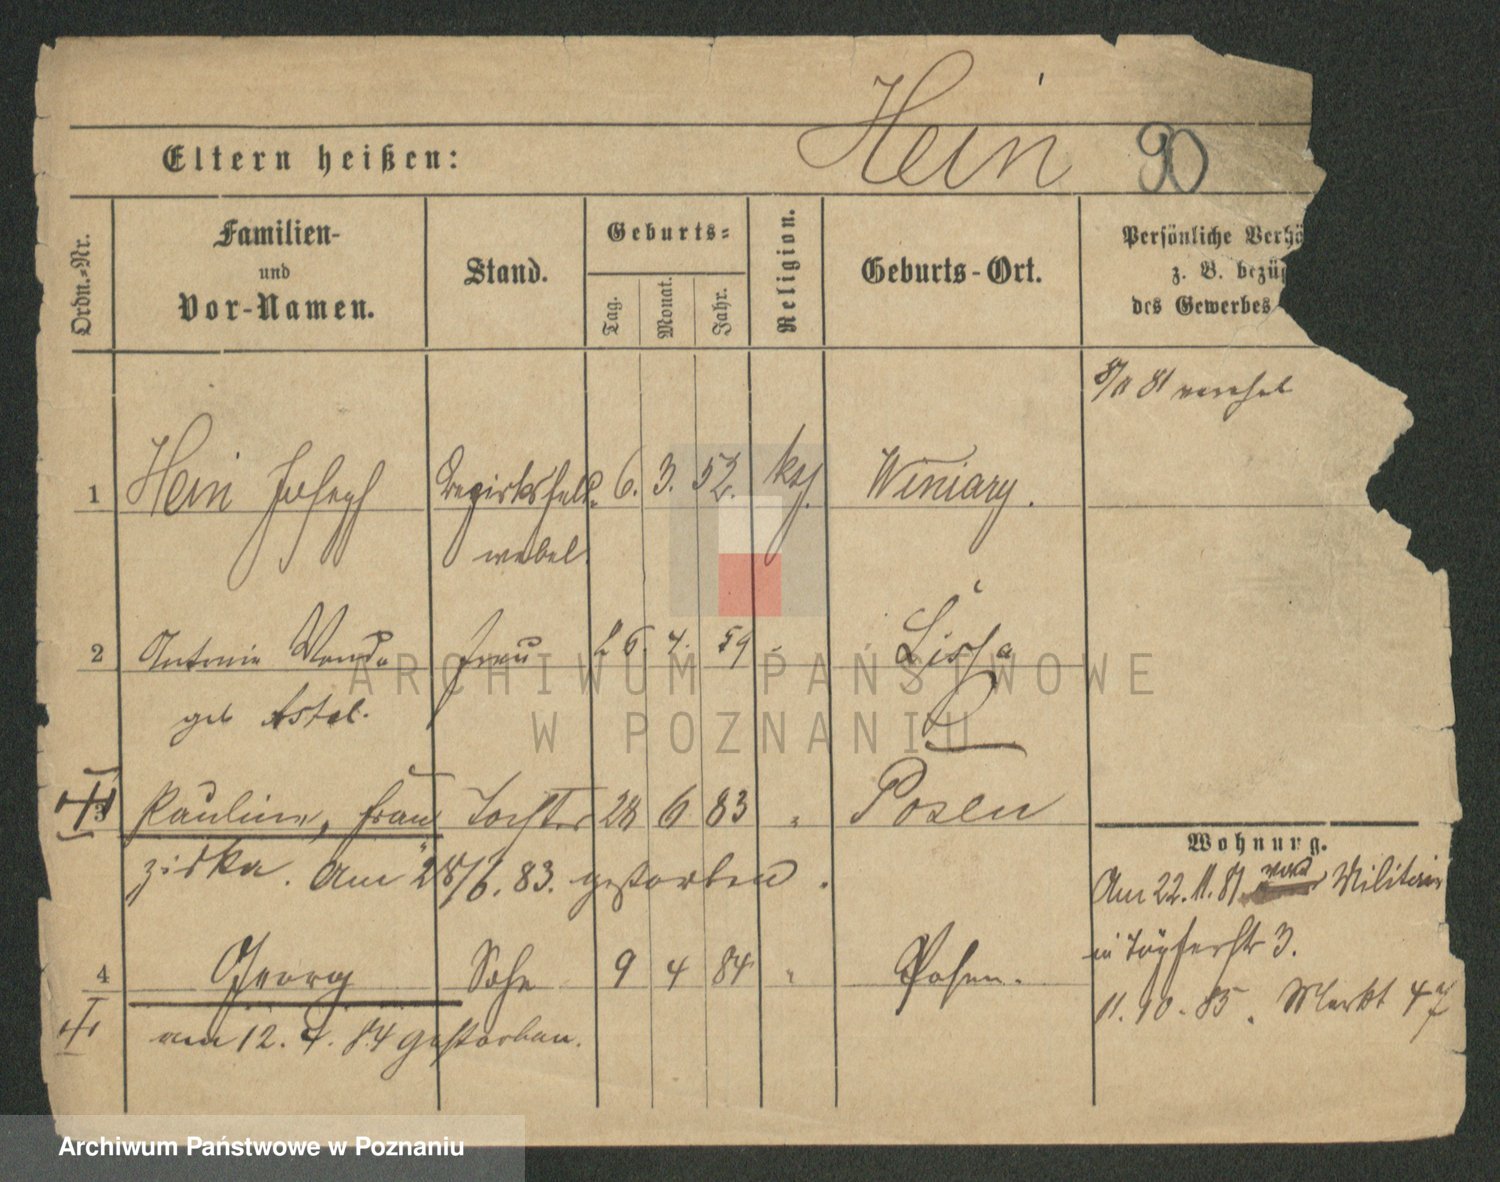 Hein 90
Eltern heißen:
Ordn.-Nr.
Familien-
und
Vor-Namen.
Stand.
Geburts-
Tag.
Monat.
Jahr.
Religion.
Geburts-Ort.
Persönliche Verhä
z. B. bezüg
des Gewerbes
81 vereh
1 Hein Joseph Bezirksfeld- 6. 3. 52. kath. Winiary.
webel.
2 Antonie Wanda Frau 26. 4. 59 Lissa
geb Astel.
3 Pauline, Fran Tochter 28 6 83 " Posen
ziska. Am 28/6. 83. gestorben.
4 Georg Sohn 9 4 84 " Posen.
am 12. 4. 84 gestorben.
Wohnung.
Am 22. 11. 81 Militair
in Töpferstr 3.
11. 10. 85. Markt 47
ARCHIWUM PAŃSTWOWE
W POZNANIU
Archiwum Państwowe w Poznaniu